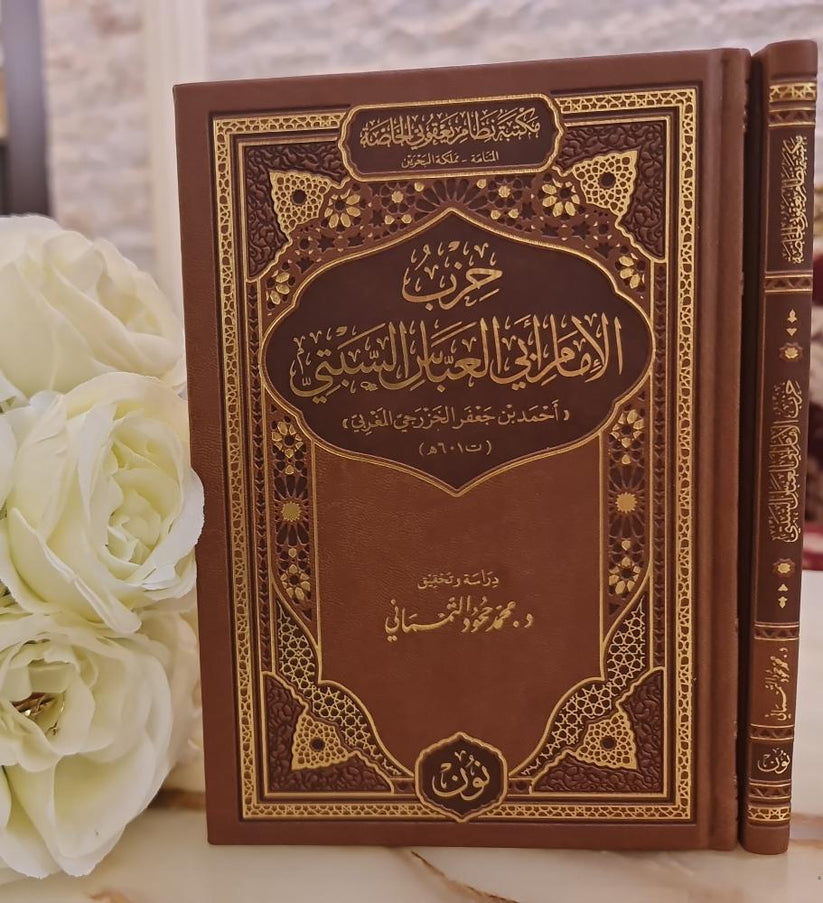 مكتبة نظام يعقوبي الخاصة
المنامة - مملكة البحرين
حِزْبُ
الإمَامِ أَبي العَبَّاسِ السَّبْتيّ
(أَحْمَد بْن جَعْفَر الخَزْرَجيّ المَغْربيّ)
(ت ٦٠١هـ)
دراسة وتحقيق
د. محمد حمود التمسماني
نون
مكتبة نظام يعقوبي الخاصة
حزب الإمام أبي العباس السبتي
د. محمد حمود التمسماني
نون